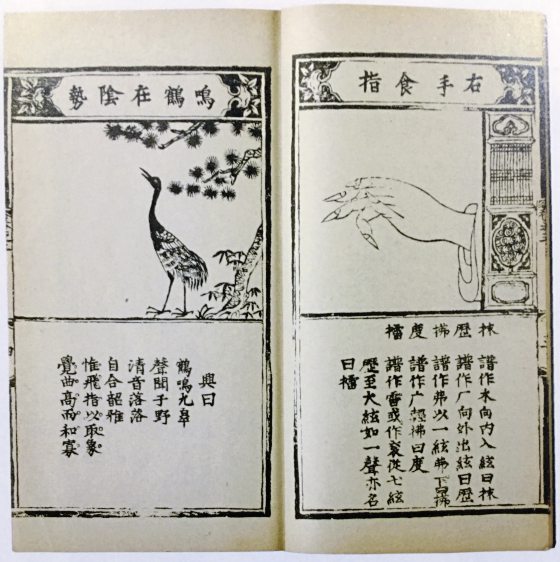 右手食指
抹 譜作木向内入絃曰抹
歷 譜作厂向外出絃曰歷
拂 譜作弗以一絃弗下曰拂
度 譜作广 拂曰度
擂 譜作雷或作 從七絃
歷至大絃如一聲亦名
曰擂
鳴鶴在陰勢
興曰
鶴鳴九皋
聲聞于野
清音落落
自合韶雅
惟飛指以取象
覺曲高而和寡